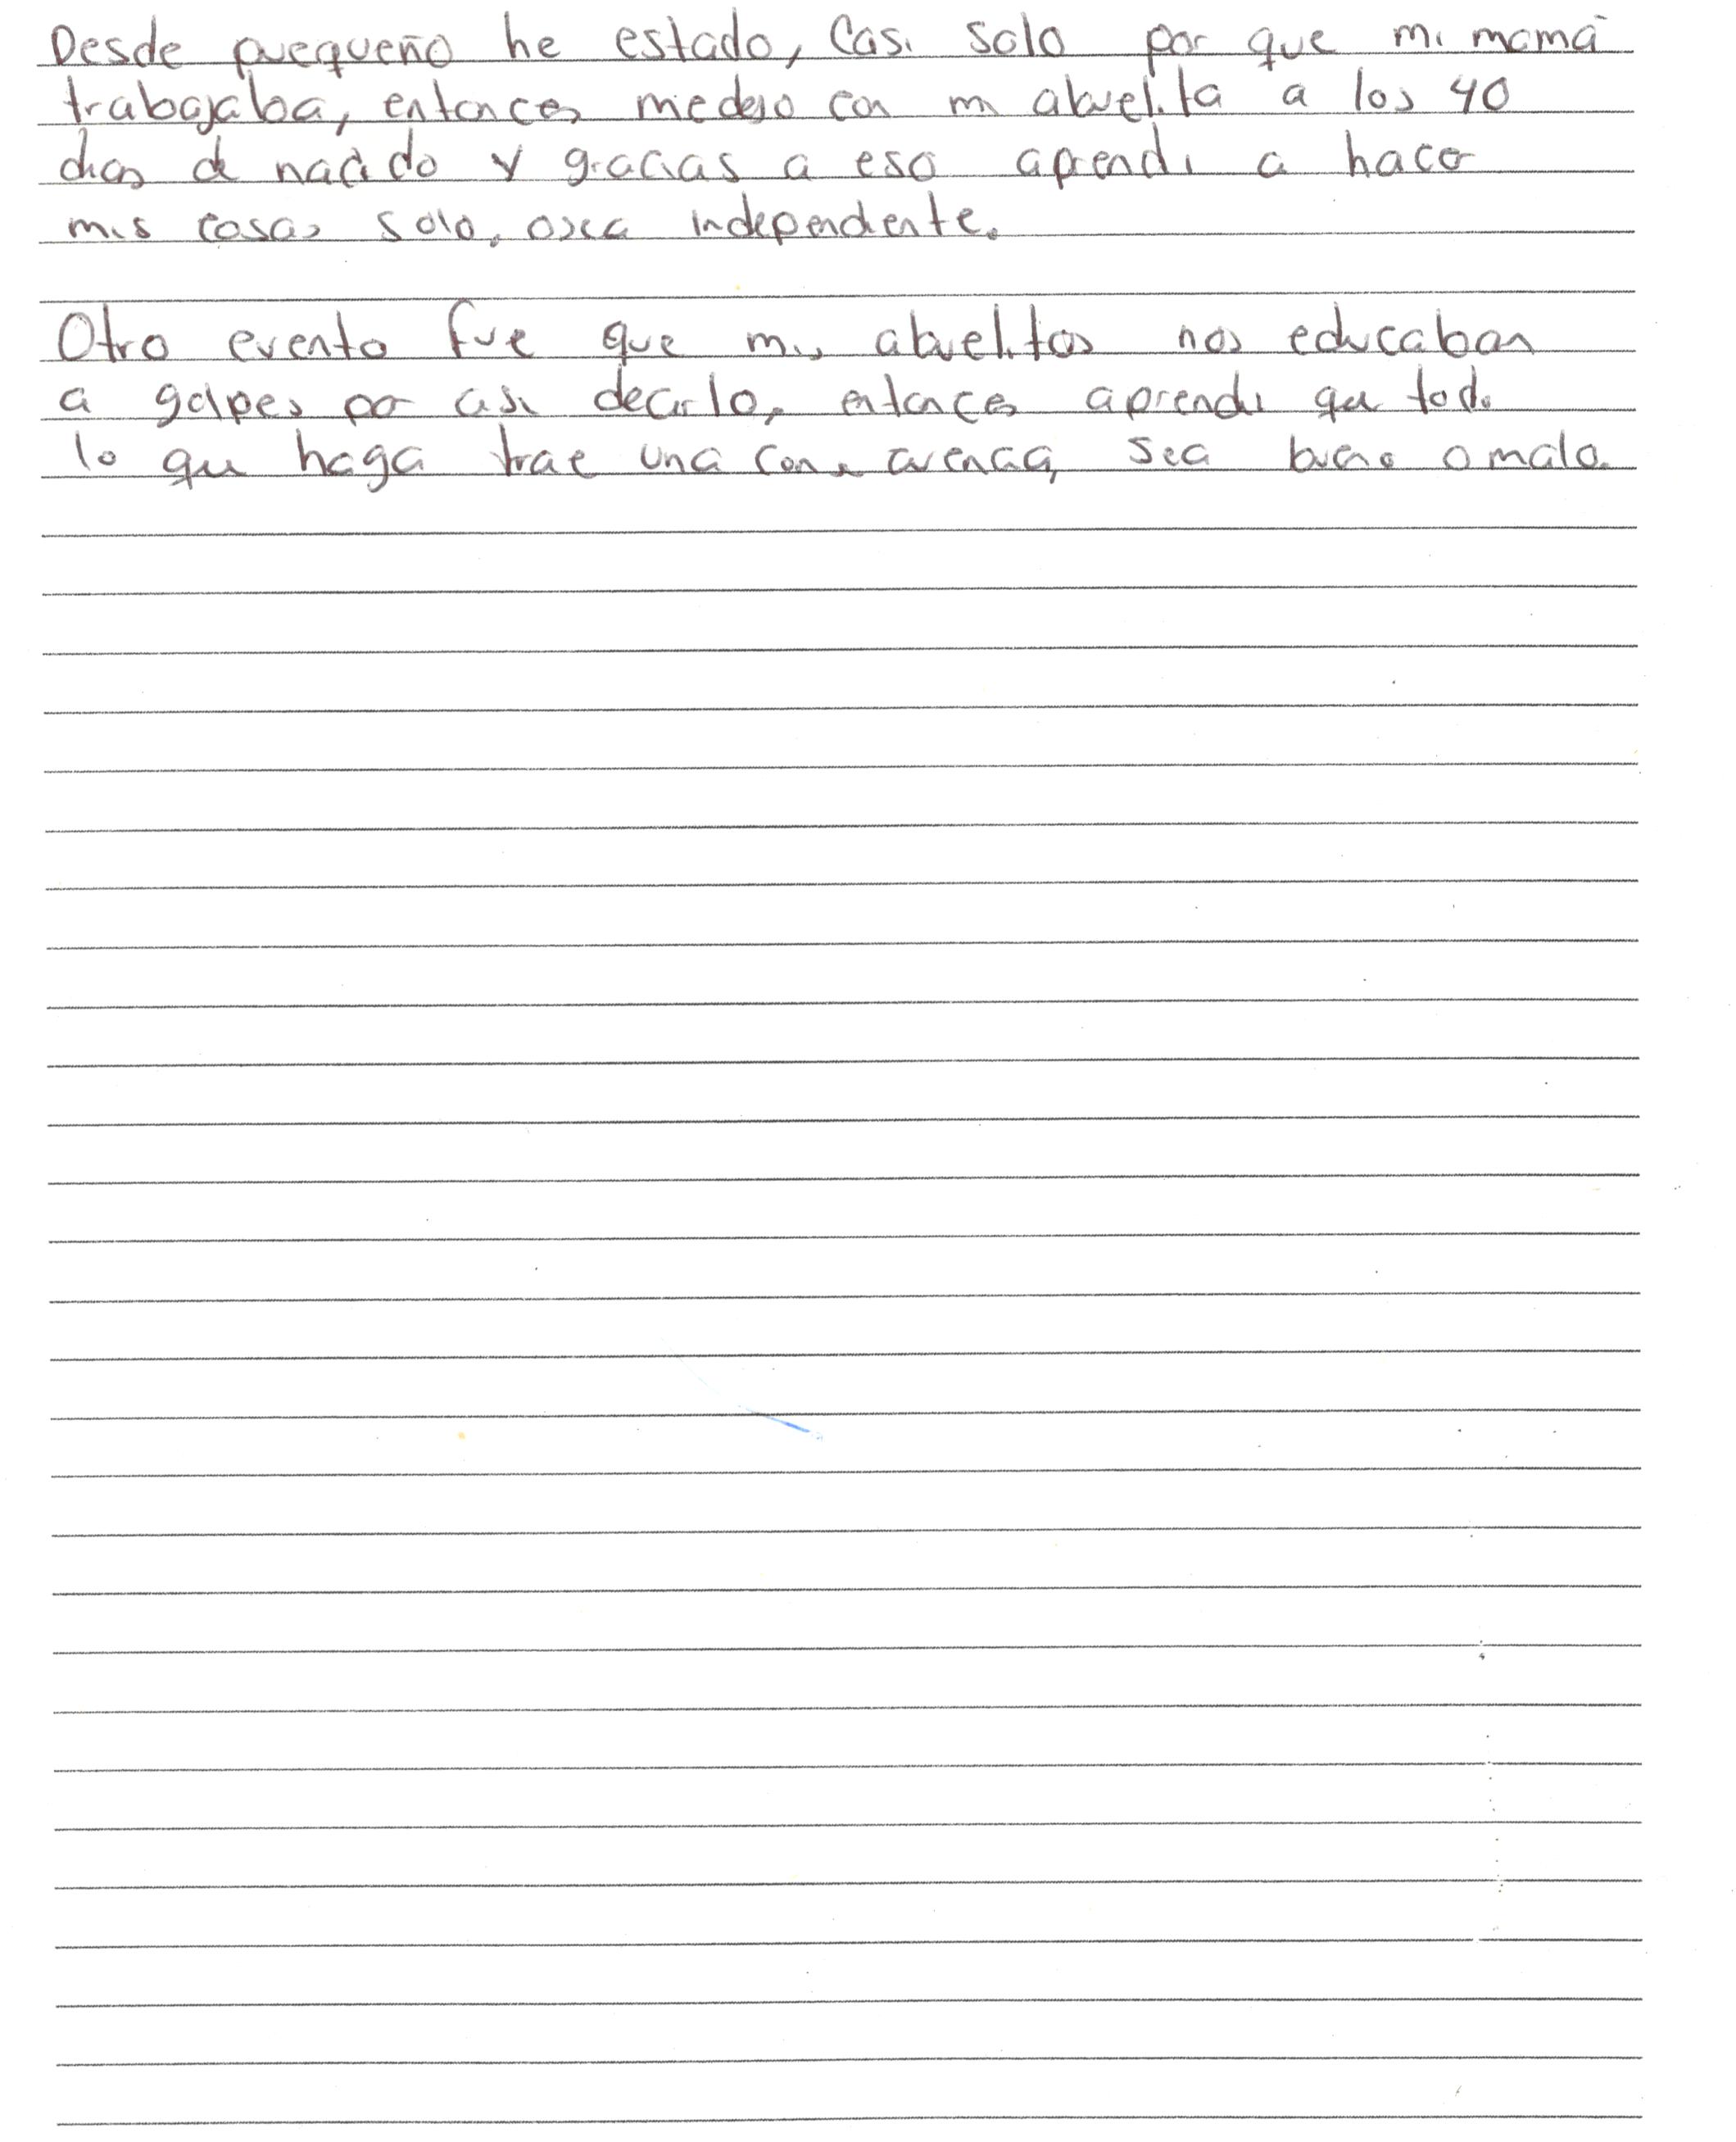 Desde puequeño he estado, Casi solo por que mi mamá
trabajaba, entonces medejo con mi abuelita a los 40
dias de nacido y gracias a eso aprendi a hacer
mis cosas solo, osea independiente.
Otro evento fue que mis abuelitos nos educaban
a golpes por asi decirlo, entonces aprendi que todo
lo que haga trae una consecuencia, sea bueno o malo.